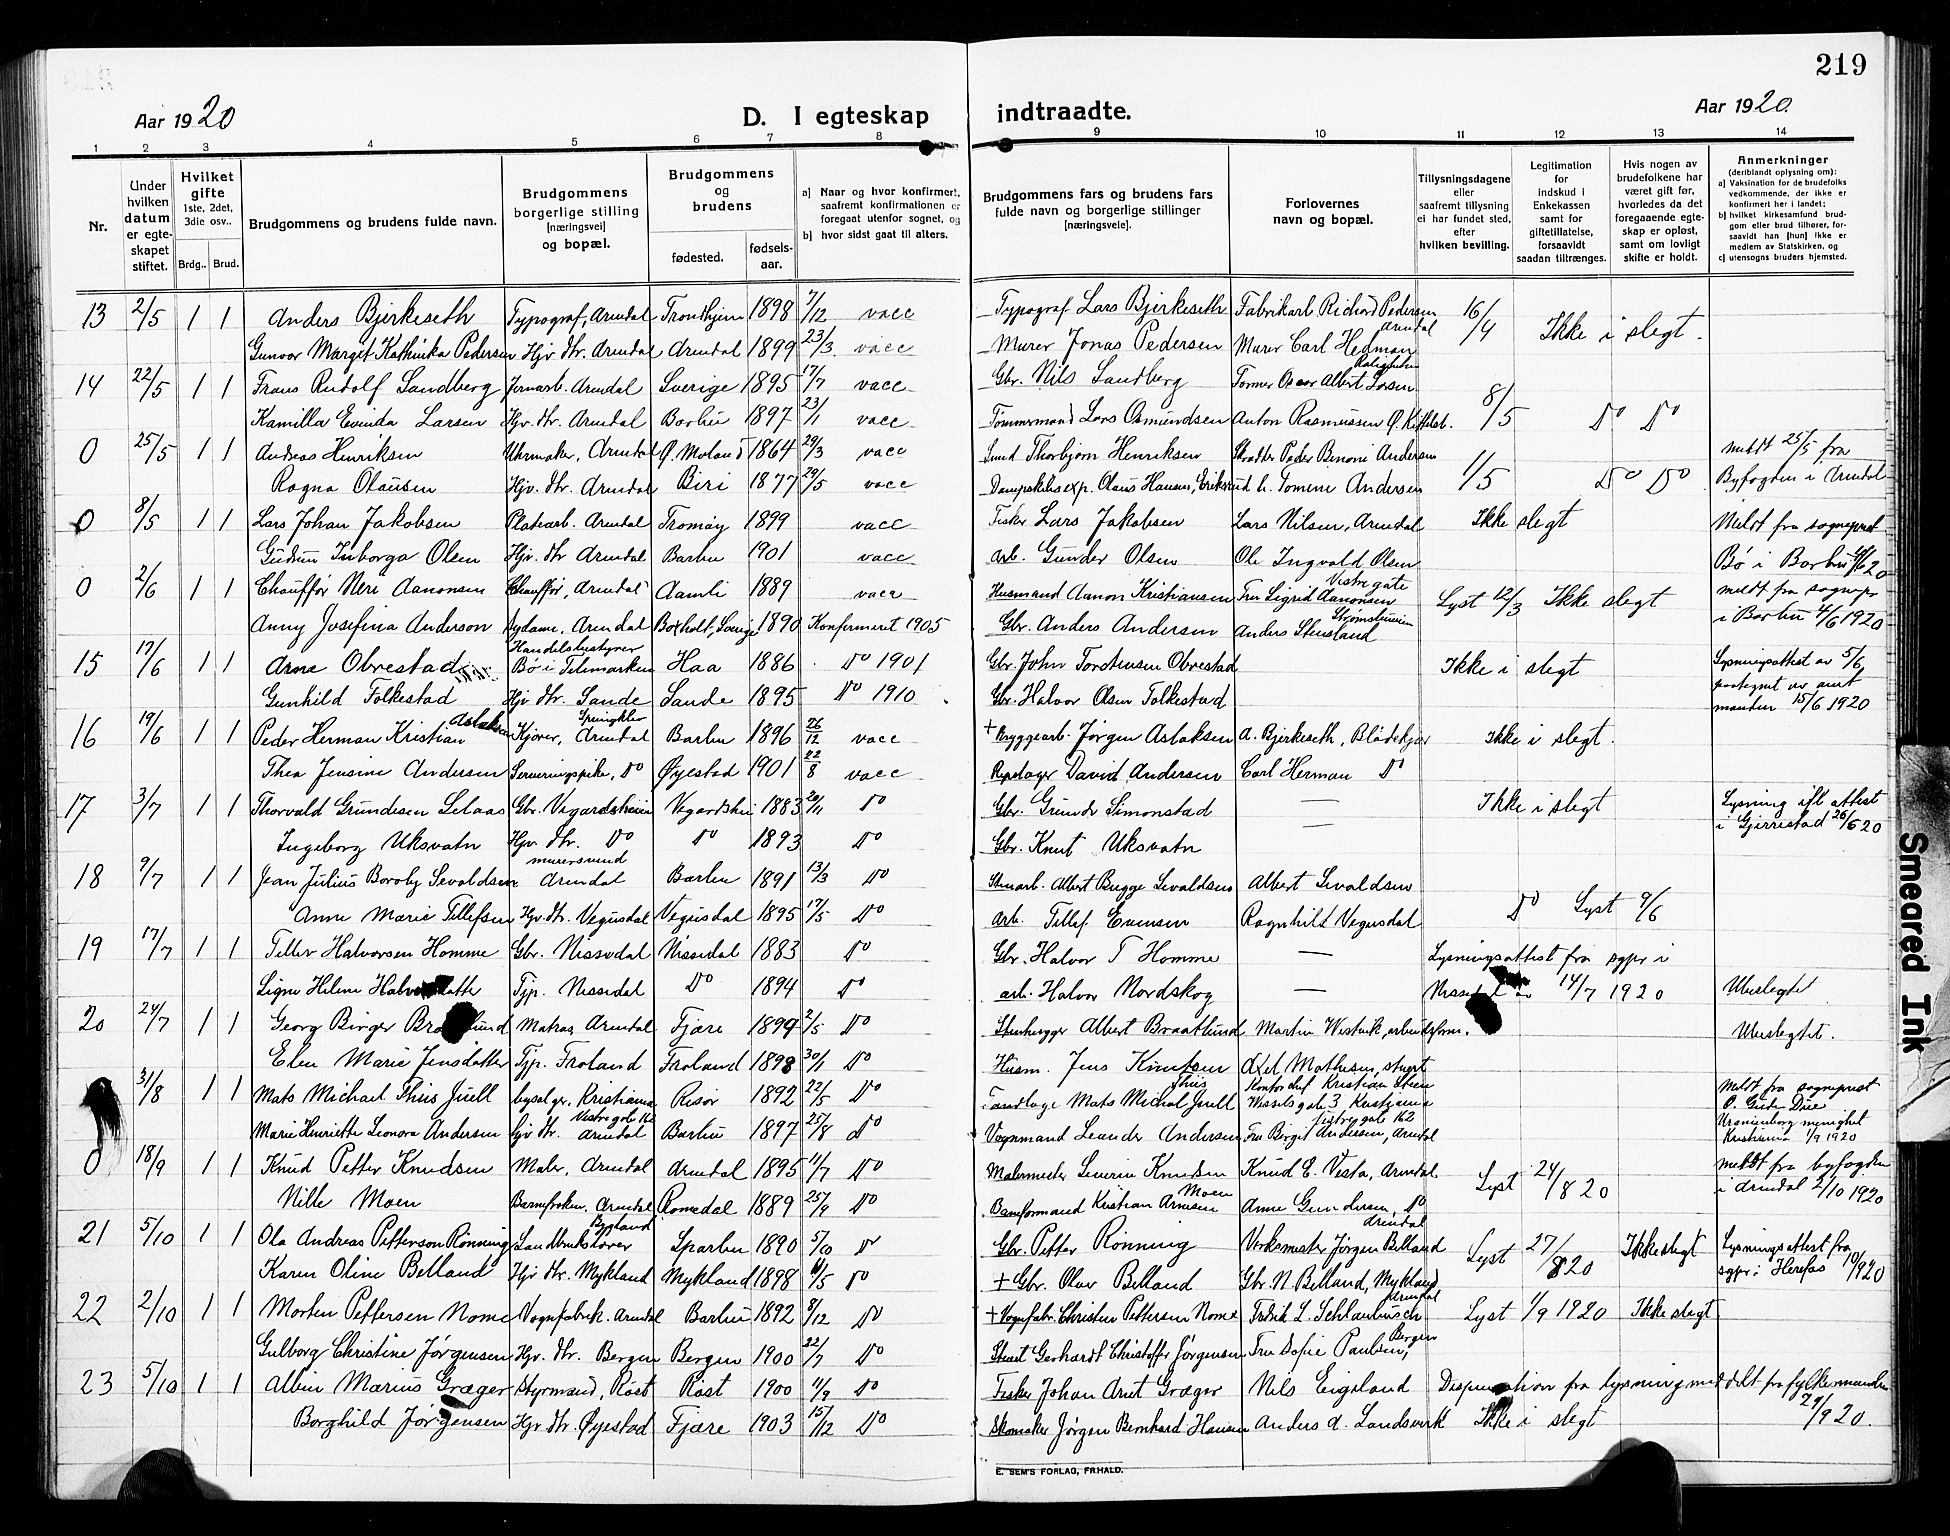 219
Aar 1920
D. I egteskap indtraadte.
Aar 1920.
1 2 3 4 5 6 7 8 9 10 11 12 13 14
Nr.
Under hvilken datum er egteskapet stiftet.
Hvilket gifte 1ste, 2det, 3die osv..
Brdg.. Brud.
Brudgommens og brudens fulde navn.
Brudgommens borgerlige stilling [næringsvei] og bopæl.
Brudgommens og brudens
fødested. fødsels-aar.
a) Naar og hvor konfirmert, saafremt konfirmationen er foregaat utenfor sognet, og
b) hvor sidst gaat til alters.
Brudgommens fars og brudens fars fulde navn og borgerlige stillinger [næringsveie].
Forlovernes navn og bopæl.
Tillysningsdagene eller saafremt tillysning ei har fundet sted, efter hvilken bevilling.
Legitimation for indskud i Enkekassen samt for giftetillatelse, forsaavidt saadan tiltrænges.
Hvis nogen av brudefolkene har været gift før, hvorledes da det foregaaende egteskap er opløst, samt om lovligt skifte er holdt.
Anmerkninger (deriblandt oplysning om):
a) Vaksination for de brudefolks vedkommende, der ikke er konfirmert her i landet;
b) hvilket kirkesamfund brudgom eller brud tilhører, forsaavidt han [hun] ikke er medlem av Statskirken, og
c) utensogns bruders hjemsted.
13 2/5 1 1 Anders Bjerkeseth Typograf, Arendal Trondhjem 1898 7/12 vacc Typograf Lars Bjerkeseth Fabrikarb Richard Pedersen Arendal 16/4 Ikke i slegt.
Gunvor Margit Kathinka Pedersen Hjv. dtr. Arendal Arendal 1899 23/3 vacc Murer Jonas Pedersen Murer Carl Hedman
14 22/5 1 1 Frans Rudolf Sandberg Jernarb. Arendal Sverige 1895 17/7 vacc Gbr. Nils Sandberg Former Oscar Albert Larsen 8/5 Do Do
Kamilla Evinda Larsen Hjv. dtr. Arendal Barbu 1897 23/1 vacc Tømmermand Lars Osmundsen Anton Rasmussen
0 25/5 1 1 Andreas Henriksen Uhrmaker, Arendal Ø. Moland 1864 29/3 vacc Smed Thorbjørn Henriksen Skrædder Peder Benoni Andersen 1/5 Do Do Meldt 25/5 fra
Ragna Olausen Hjv. dtr. Arendal Biri 1877 29/5 vacc Dampskibsexp. Olaus Hansen, Eriksrud h. Tomine Andersen Byfogden i Arendal
0 8/5 1 1 Lars Johan Jakobsen Platearb. Arendal Tromøy 1899 vacc Fisker Lars Jakobsen Lars Nilsen, Arendal Ikke slegt Meldt fra sogneprest
Gudrun Inborga Olsen Hjv. dtr Arendal Barbu 1901 vacc arb. Gunder Olsen Ole Ingvald Olsen Bø i Barbu 4/6 20
0 2/6 1 1 Chauffør Neri Aanonsen Chauffør, Arendal Aamli 1889 vacc Husmand Aanon Kristiansen Fru Sigrid Aanonsen Vestregate Lyst 12/3 Ikke slegt meldt fra sognepr
Anny Josefina Anderson Sydame, Arendal Boxholt, Sverige 1890 Konfirmeret 1905 Gbr. Anders Andersen Anders Stensland i Barbu 4/6 1920
15 17/6 1 1 Arne Obrestad Handelsbestyrer Bø i Telemarken Haa 1886 Do 1901 Gbr. John Torstensen Obrestad Ikke i slegt Lysningsattest av 5/6
Gunhild Folkestad Hjv dtr. Sande Sande 1895 Do 1910 Gbr. Halvor Olsen Folkestad paategnet av amtmanden 15/6 1920
16 19/6 1 1 Peder Herman Kristian Aslaksen Kjører, Arendal Barbu 1896 26/12 vacc + Bryggearb. Jørgen Aslaksen A. Bjerkeseth, Blødekjær Ikke i slegt.
Thea Jensine Andersen Serveringspike, Do Øyestad 1901 22/8 vacc Repslager David Andersen Carl Herman Do
17 3/7 1 1 Thorvald Grundesen Selaas Gbr. Vegardsheien Vegardshei 1883 20/11 Do Gbr. Grunde Simonstad — Ikke i slegt Lysning ifl attest
Ingeborg Uksvatn Hjv. dtr. Do Do 1893 Do Gbr. Knut Uksvatn — i Gjerrestad 26/6 20
18 9/7 1 1 Jean Julius Boroby Sevaldsen murersvend Arendal Barbu 1891 13/3 Do Stenarb. Albert Bugge Sevaldsen Albert Sevaldsen
Anne Marie Tellefsen Hjv. dtr. Vegusdal Vegusdal 1895 17/5 Do arb. Tellef Evensen Ragnhild Vegusdal Do Lyst 9/6
19 17/7 1 1 Tellev Halvorsen Homme Gbr. Nissedal Nissedal 1883 Do Gbr. Halvor T Homme — Lysningsattest fra sgpr i
Signe Helene Tjp. Nissedal Do 1894 Do arb. Halvor Nordskog — Nissedal av 14/7 1920 Ubeslegtet
20 24/7 1 1 Georg Birger Matros Arendal Fjære 1899 2/5 Do Stenhugger Albert Braatlund Martin Westvik, Ubeslegtet.
Elen Marie Jensdatter Tjp. Froland Froland 1898 30/1 Do Husm. Jens Knutsen Axel Mathesen, stuert
31/8 1 1 Mats Michael Thiis Juell Kristiania Risør 1892 22/5 Do Tandlæge Mats Michal Thiis Juell Kontorchef Kristian Steen Wesselsgate 3 Kristiania Meldt fra sogneprest
Marie Henriette Leonora Andersen Hjv. dtr. Vestregate 162 Arendal Barbu 1897 25/8 Do Vognmand Leander Andersen Fru Birgit Andersen, Vestregate 162 Arendal Uranienborg menighet Kristiania 1/9 1920
0 18/9 1 1 Knud Petter Knudsen Maler, Arendal Arendal 1895 11/7 Do Malermester Severin Knudsen Knud E. Vesta, Arendal Lyst 24/8 20 meldt fra byfogden
Nille Moen Barnefrøken, Arendal Romedal 1889 25/9 Do Baneformand Kristian Arnesen Moen Anne Gundersen, Do i Arendal 2/10 1920
21 5/10 1 1 Ola Andreas Petterson Rønning Landbrukslærer Bygland Sparbu 1890 5/10 Do Gbr. Petter Rønning Verksmester Jørgen Belland Arendal Lyst 27/8 20 Ikke slegt Lysningsattest fra
Karen Oline Belland Hjv dtr. Mykland Mykland 1898 4/5 Do + Gbr. Olav Belland Gbr. N. Belland, Mykland sgpr i Herefos 10/9 20
22 2/10 1 1 Morten Pettersen Nome Vognfabrik. Arendal Barbu 1892 8/12 Do + Vognfabr. Christen Pettersen Nome Fredrik L. Schlanbusch Arendal Lyst 1/9 1920 Ikke slegt
Gulborg Christine Jørgensen Hjv. dtr. Bergen Bergen 1900 22/7 Do Stuert Gerhardt Christoffer Jørgensen Fru Sofie Paulsen, Bergen
23 5/10 1 1 Albin Marius Græger Styrmand, Røst Røst 1900 11/9 Do Fisker Johan Arnt Græger Nils Eigeland Dispensation fra lysning meddelt fra fylkesmanden
Borghild Jørgensen Hjv dtr. Øyestad Fjære 1903 15/12 Do Skomaker Jørgen Bernhard Hansen Anders A. Landsverk Ikke i slegt 29/9 20.
E. SEM'S FORLAG, FR.HALD.
Smeared Ink